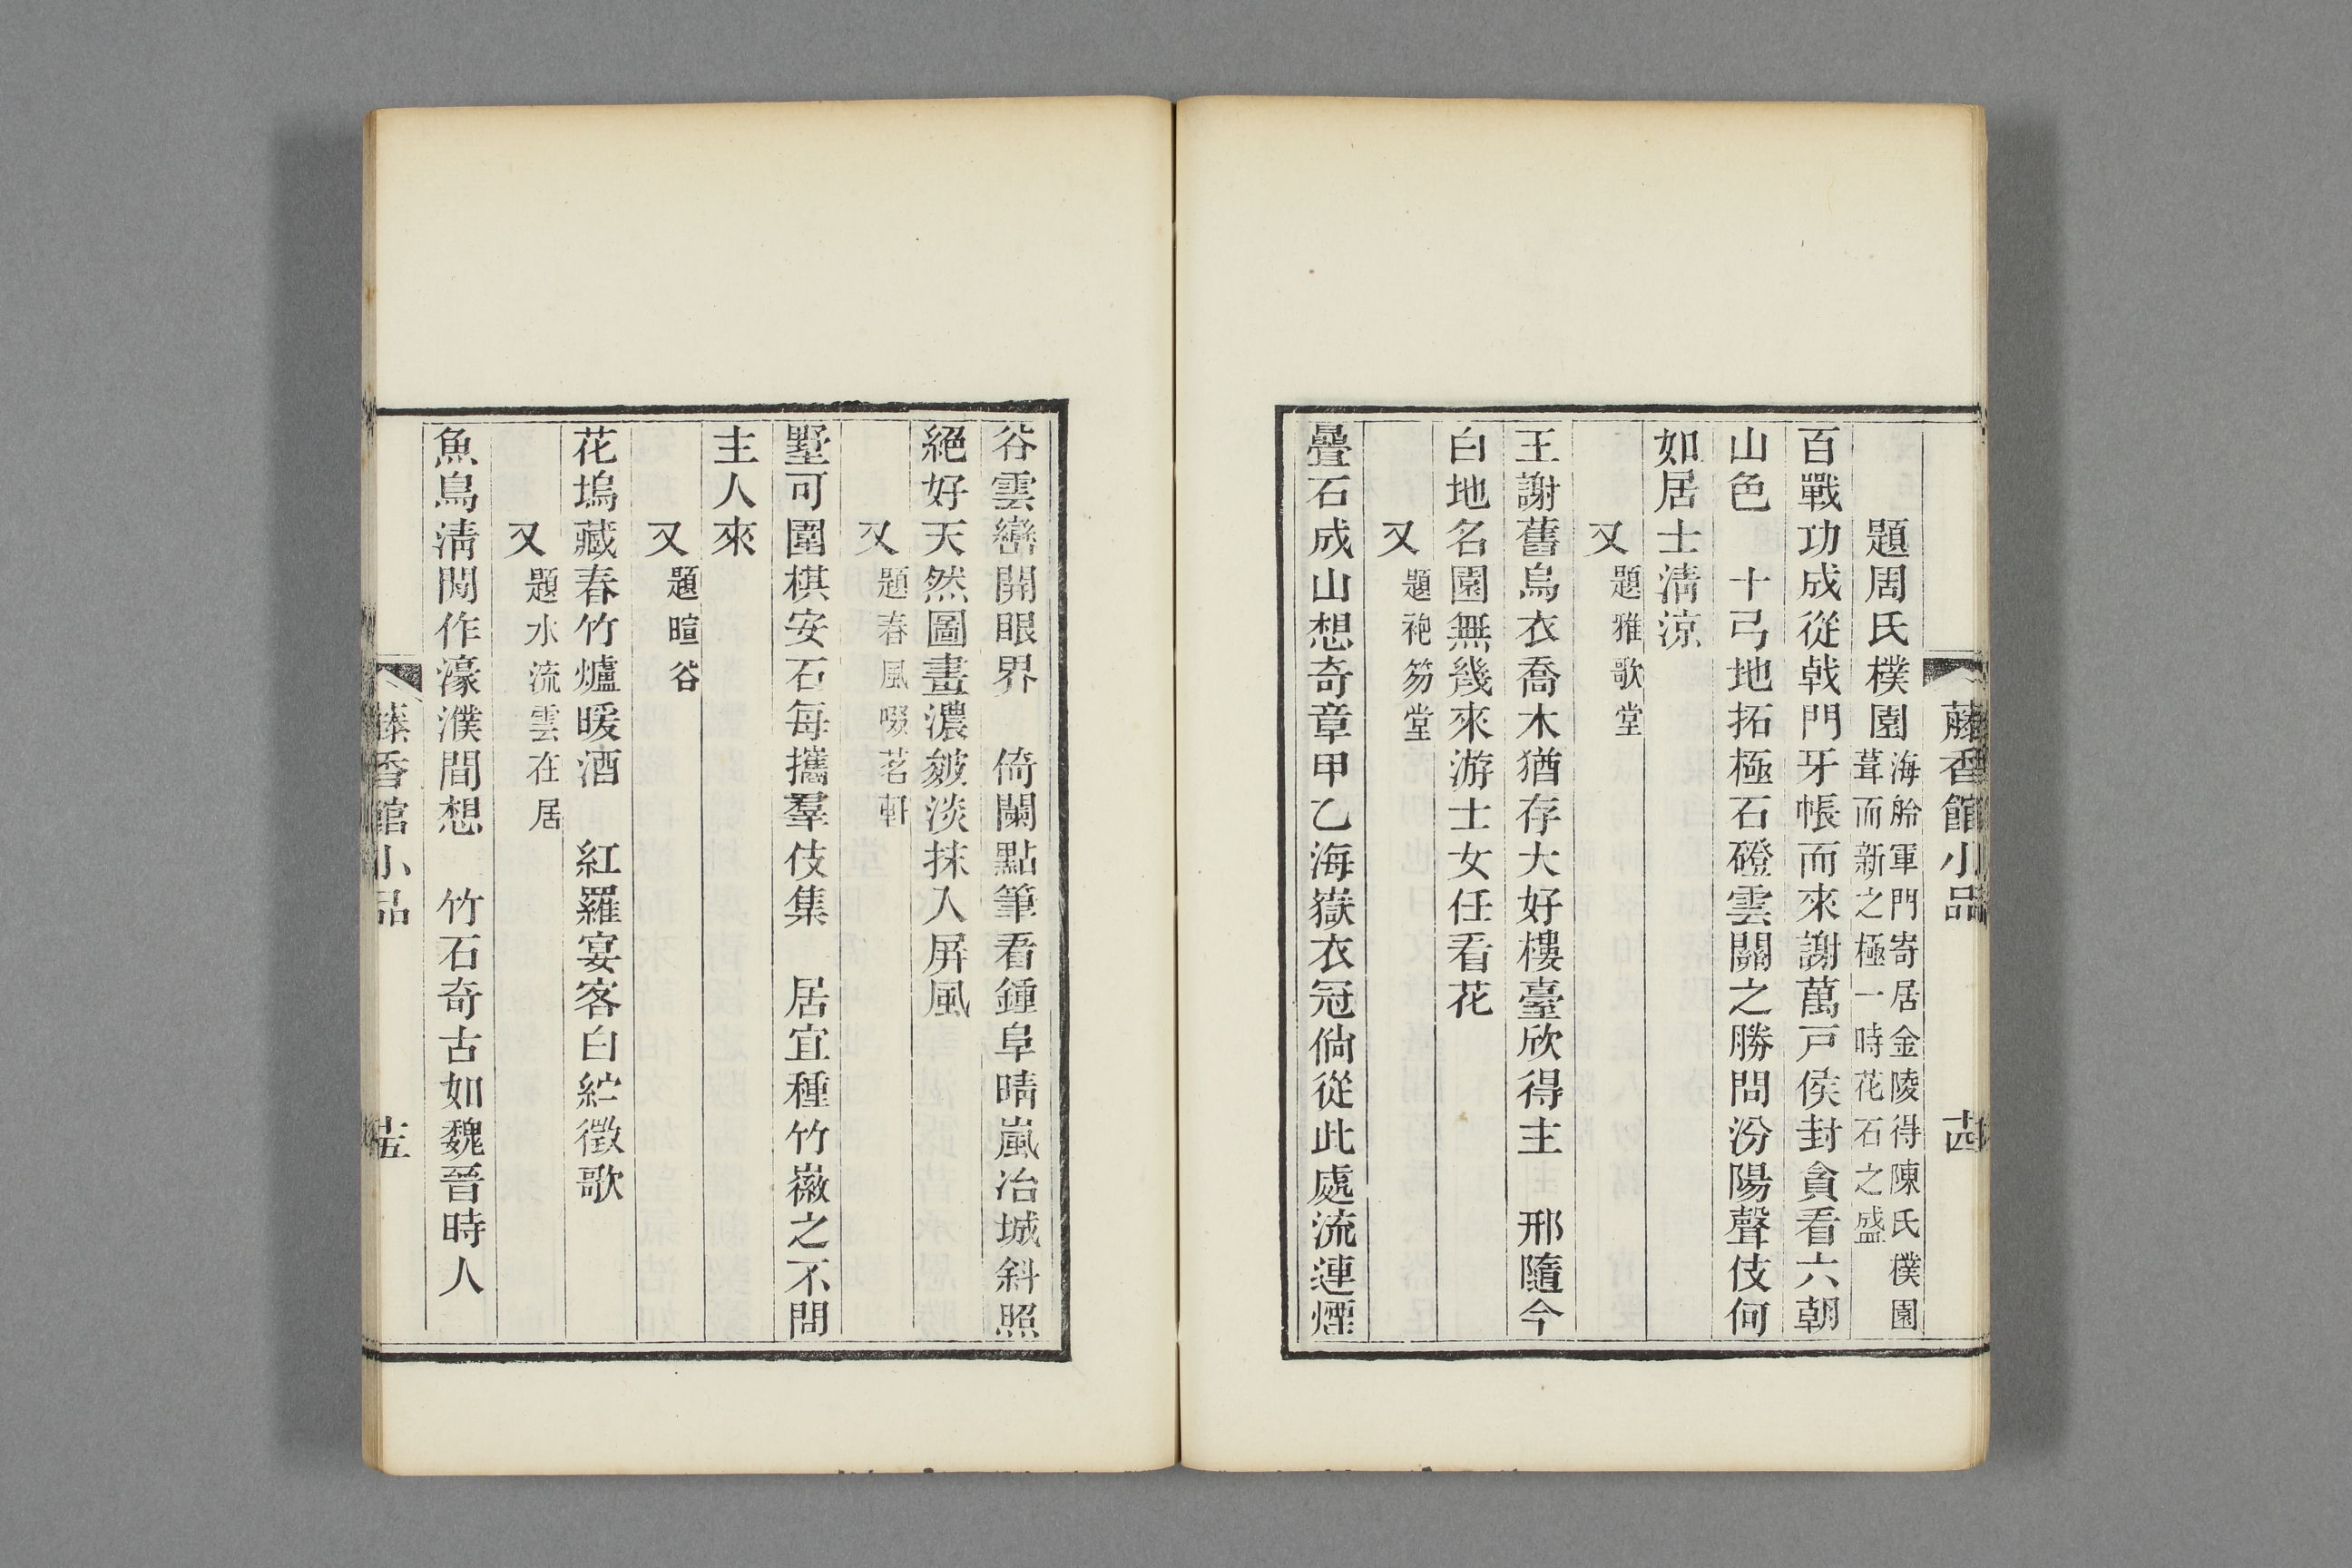 藤香館小品
十四
題周氏樸園海舲軍門寄居金陵得陳氏樸園
葺而新之極一時花石之盛
百戰功成從戟門牙帳而來謝萬戸侯封貪看六朝
山色　十弓地拓極石磴雲關之勝問汾陽聲伎何
如居士淸涼
又題雅歌堂
王謝舊烏衣喬木猶存大好樓臺欣得主　邢隨今
白地名園無幾來游士女任看花
又題袍笏堂
疊石成山想奇章甲乙海嶽衣冠倘從此處流連煙
谷雲巒開眼界　倚闌點筆看鍾阜晴嵐冶城斜照
絕好天然圖畫濃皴淡抹入屏風
又題春風啜茗軒
墅可圍棋安石每攜羣伎集　居宜種竹嶶之不問
主人來
又題暄谷
花塢藏春竹爐暖酒　紅羅宴客白紵徵歌
又題水流雲在居
魚鳥淸閒作濠濮間想　竹石奇古如魏晉時人
藤香館小品
十五